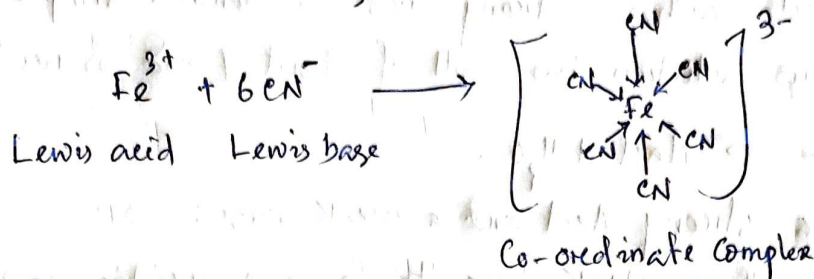 Fe³⁺ + 6CN⁻ ⟶ [Fe CN CN CN CN CN CN]³⁻
Lewis acid Lewis base
Co-ordinate Complex